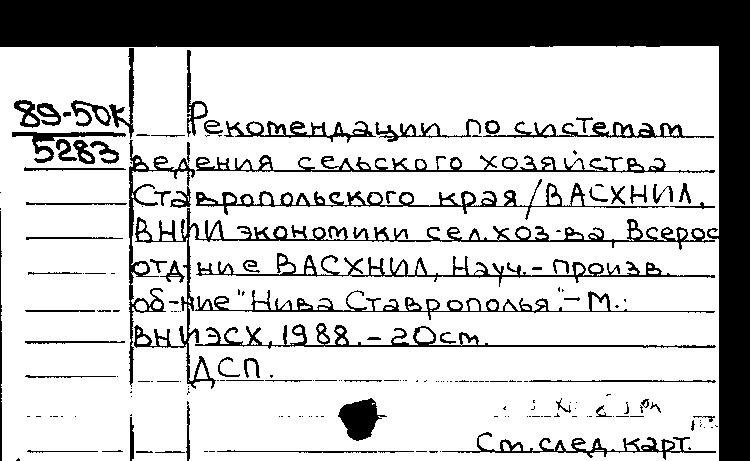 89-50К
5283
Рекомендации по системам
ведения сельского хозяйства
Ставропольского края/ВАСХНИЛ,
ВНИИ экономики сел.хоз-ва, Всерос
отд-ние ВАСХНИЛ, Науч.- произв.
об-ние "Нива Ставрополья".- М.:
ВНИЭСХ, 1988.- 20см.
ДСП.
См. след. карт.